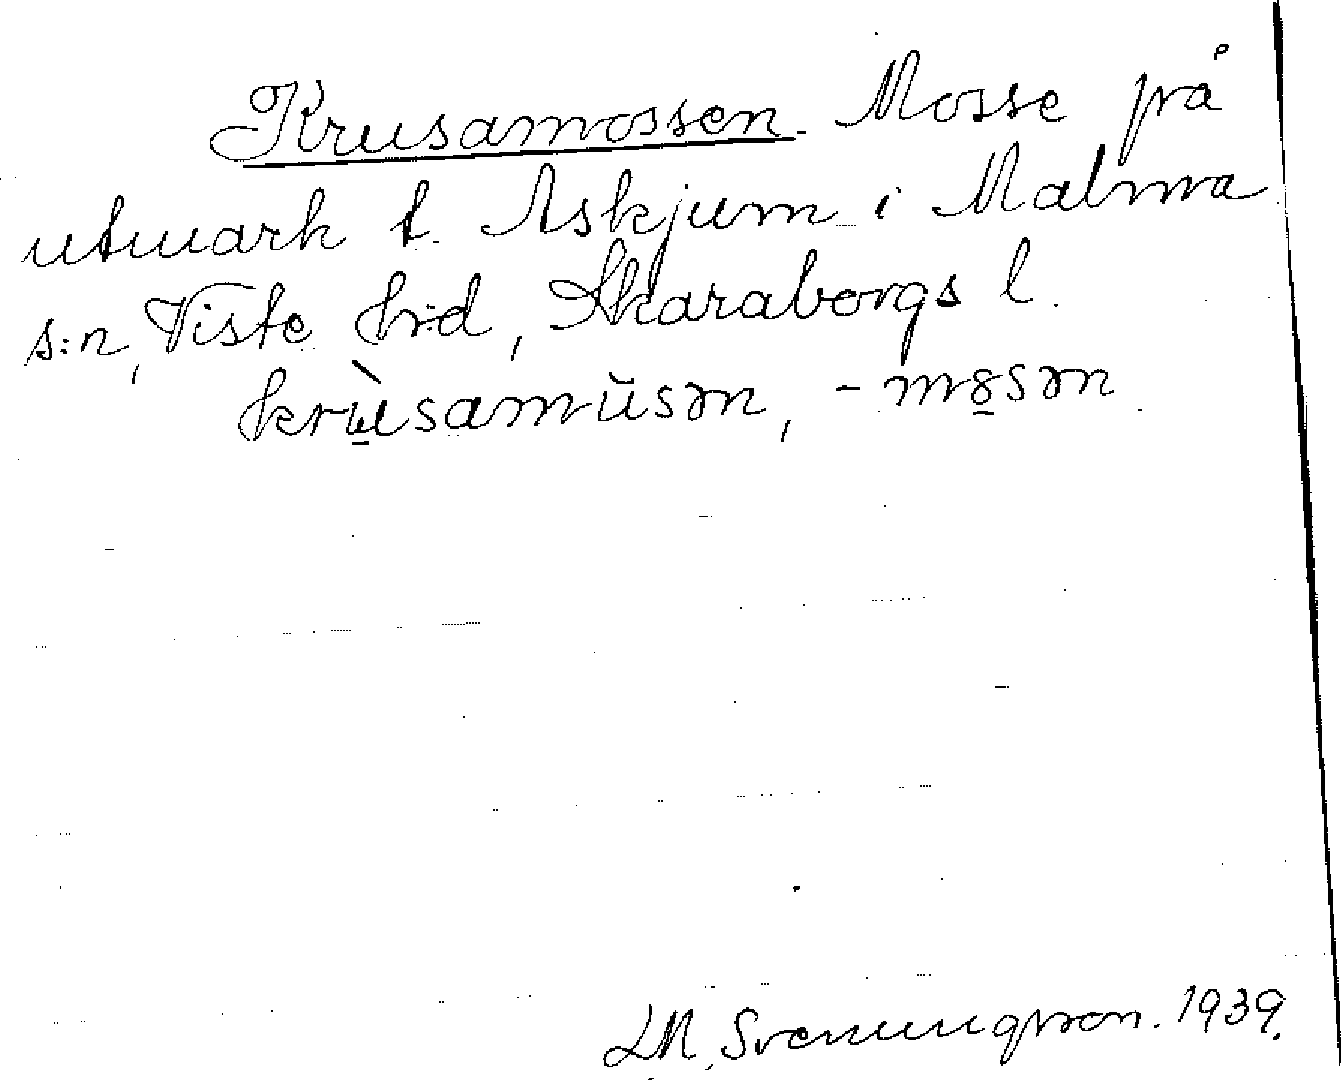 Krusamossen. Mosse på
utmark t. Askjum i Malma
s:n, Viste hrd, Skaraborgs l.
krùsamŭsən, -mo̱sən.
Svenungsson. 1939.